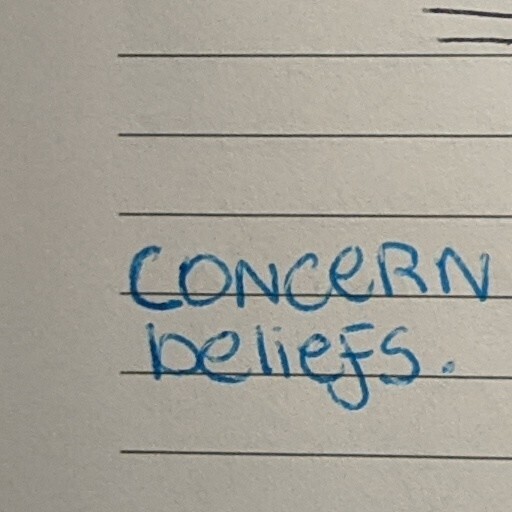 CONCERN
beliefs.